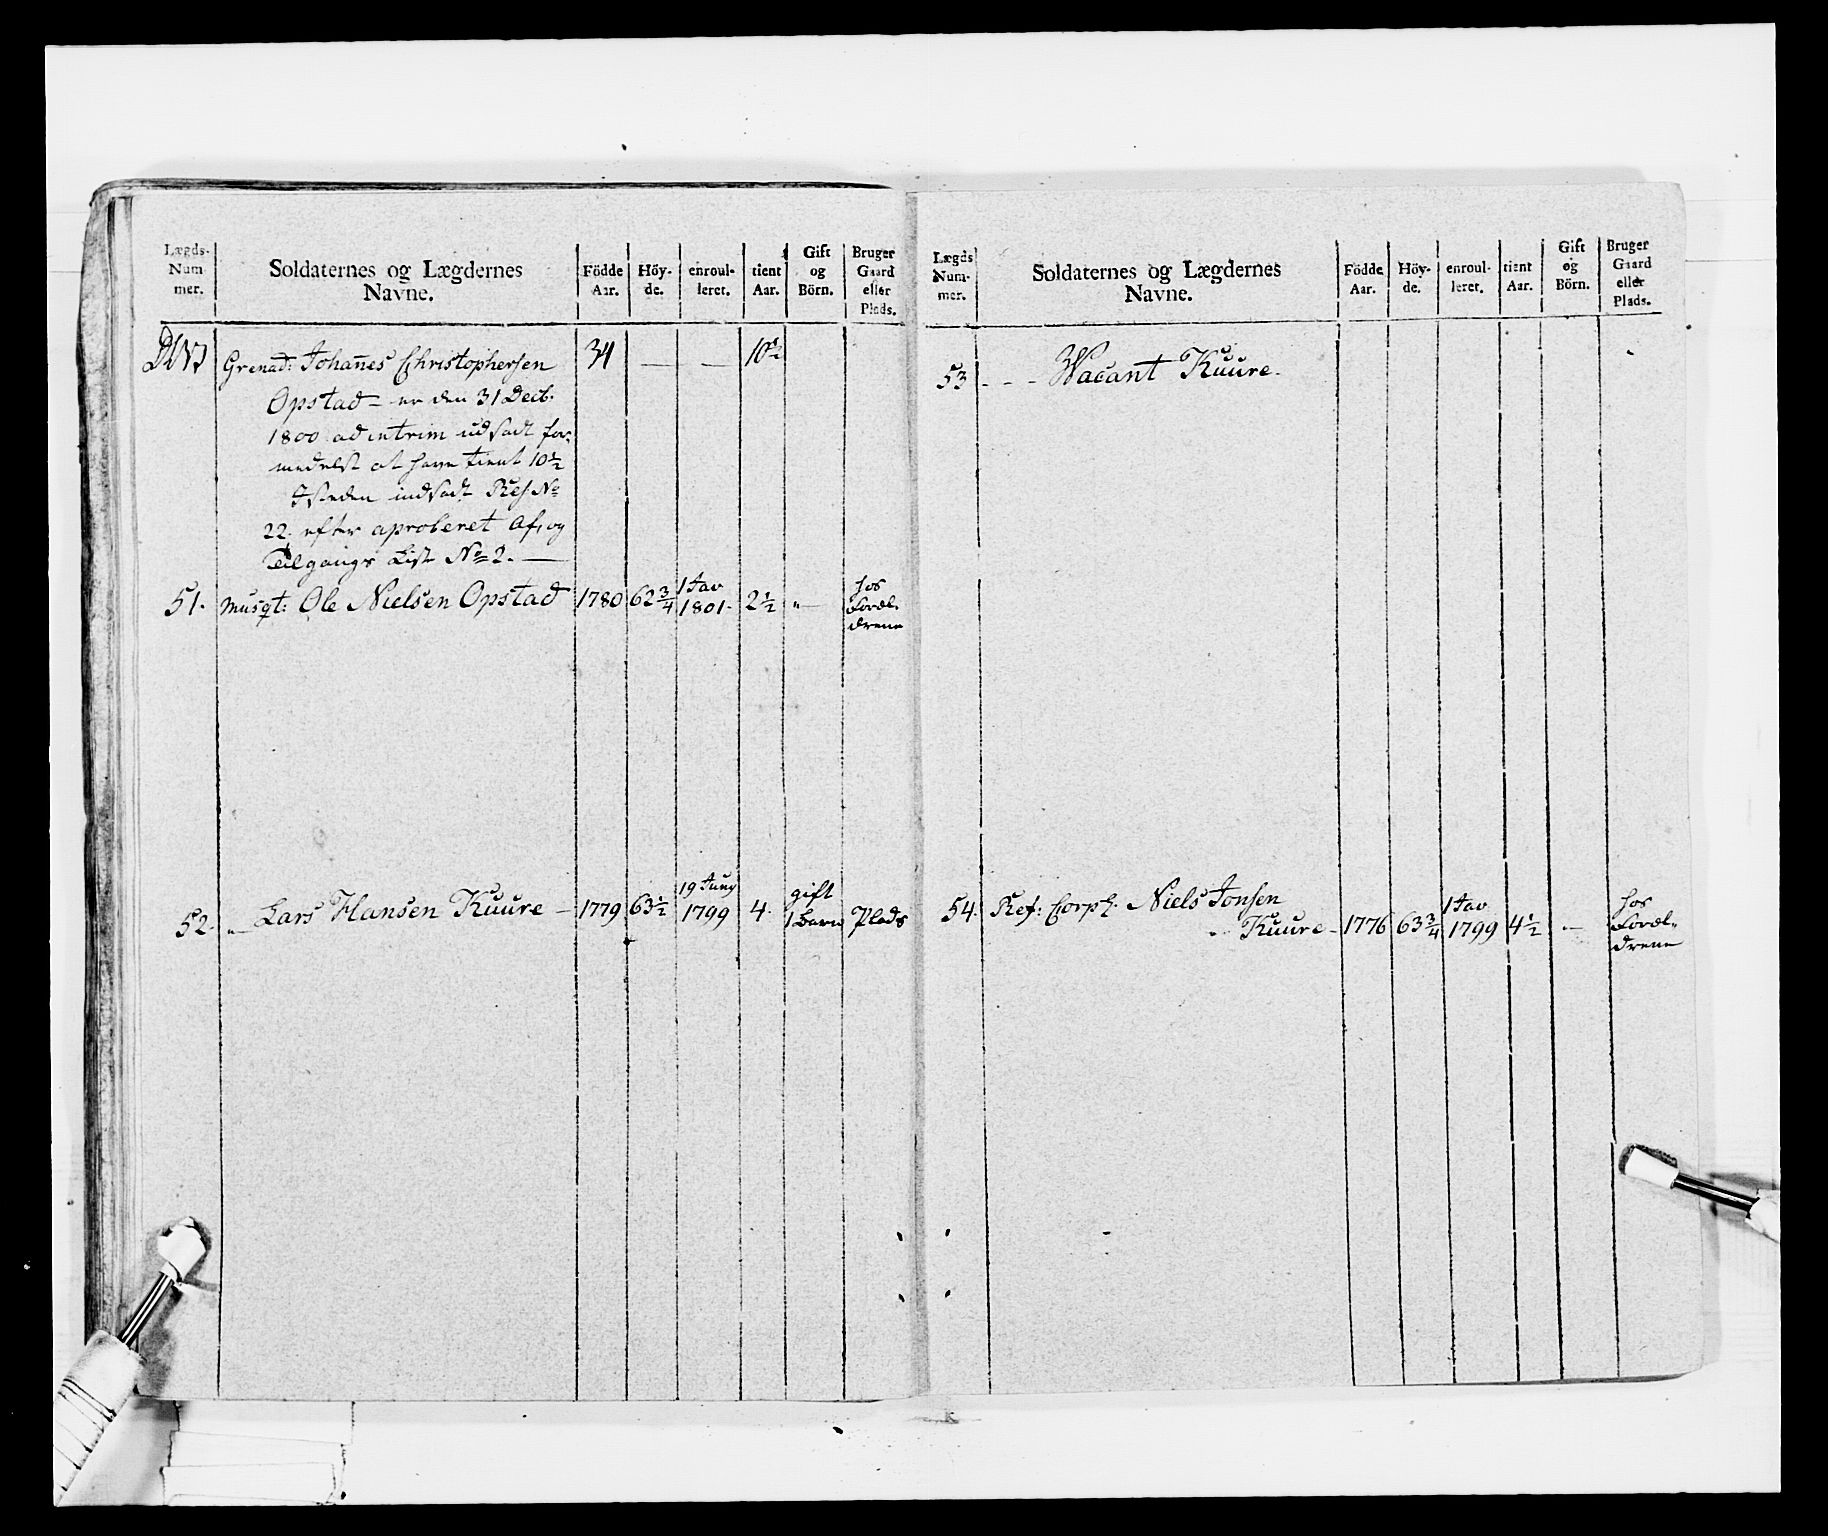 Lægds- Num mer.
Soldaternes og Lægdernes Navne.
Födde Aar.
Höy- de.
enroul- leret.
tient Aar.
Gift og Börn.
Bruger Gaard eller Plads.
Grenad: Johan̄es Christophersen 34 — — 10½
Opstad – er den 31 Decb.
1800 ad intrim udsadt for-
medelst at have tient 10½
Isteden indsadt Res No
22. efter aproberet Af, og
Tilgangs List No 2. —
51. Musqt: Ole Nielsen Opstad 1780 62¾ 1 Jav 1801. 2½ „— hos Foræl- drene
52. „— Lars Hansen Kuure — 1779 63½ 19 Juny 1799 4. gift 1 Barn Plads
Lægds Num- mer.
Soldaternes og Lægdernes Navne.
Födde Aar.
Höy- de.
enroul- leret.
tient Aar.
Gift og Börn.
Bruger Gaard eller Plads.
53 - - - Wacant Kuure.
54. Ref: Corpl. Niels Jonsen
Kuure – 1776 63¾ 1 Jav 1799 4½ „— hos Foræl- drene